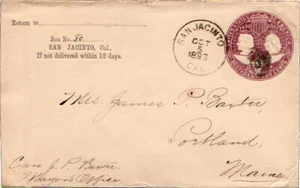 Return to
Box No. 80
SAN JACINTO, Cal.
If not delivered within 10 days.
SAN JACINTO
OCT
5
1893
CAL.
Mrs. James P. Baxter,
Portland,
Maine
Care J. P. Baxter
Mayor's Office